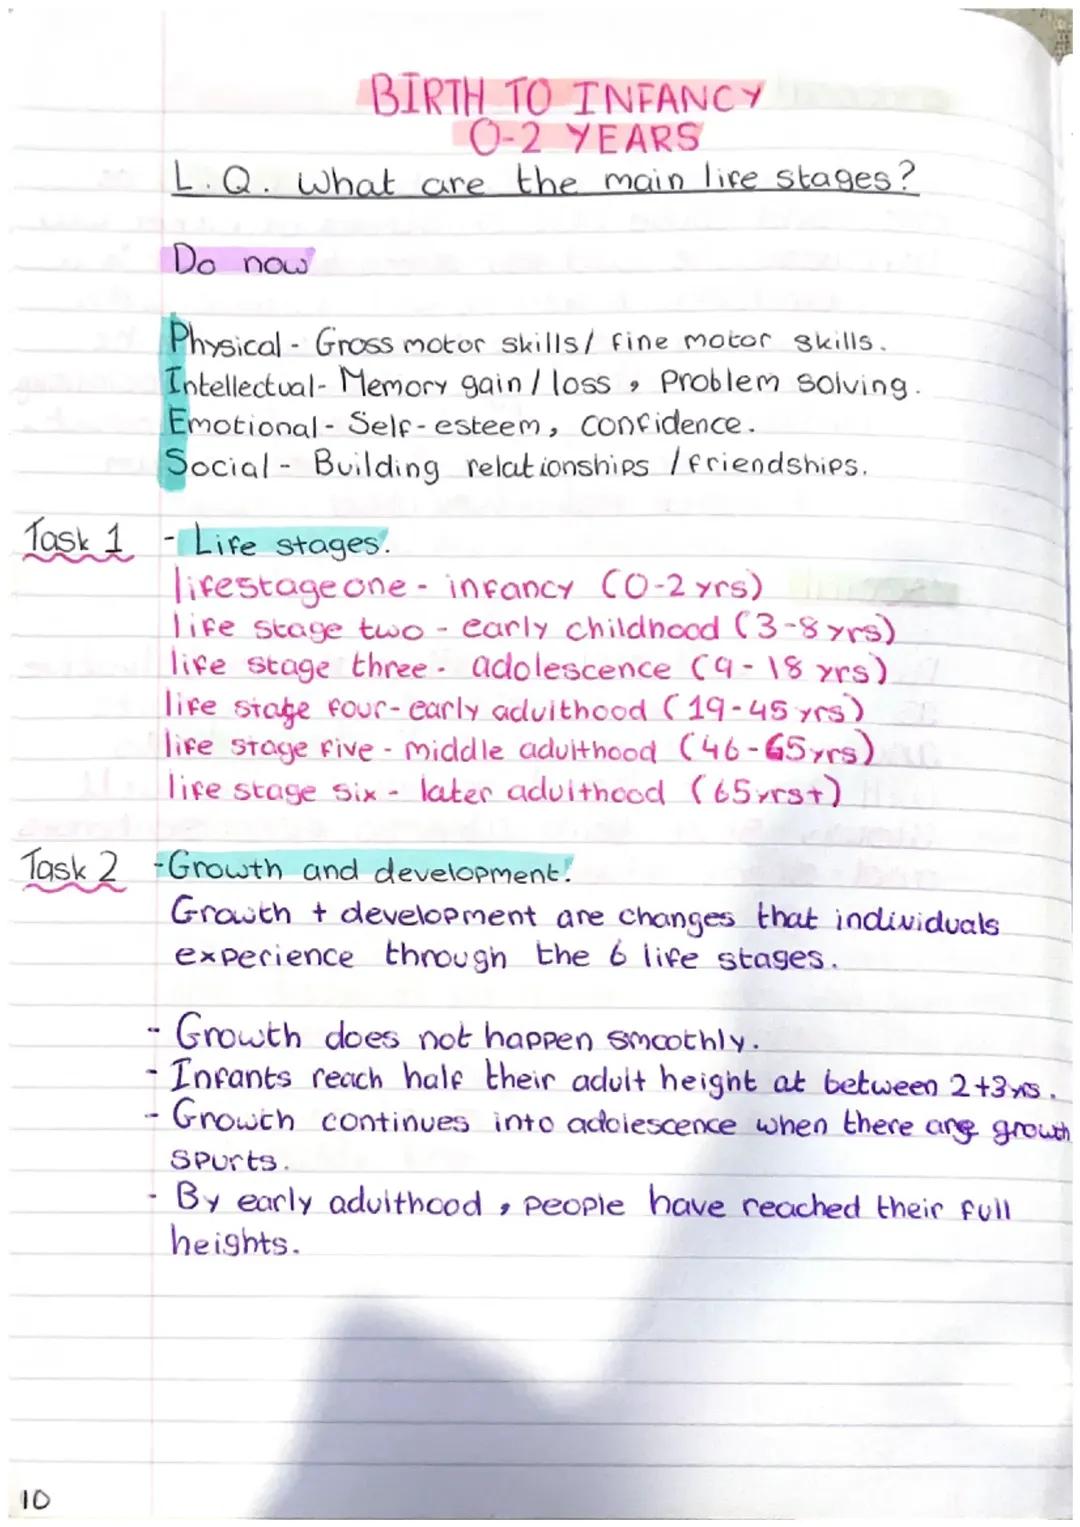 BIRTH TO INFANCY
0-2 YEARS
L.Q. What are the main life stages?
Do now
Physical - Gross motor skills/ fine motor skills.
Intellectual - Memory gain / loss, Problem solving.
Emotional - Self-esteem, confidence.
Social - Building relationships / friendships.
Task 1 - Life stages.
life stage one - infancy (0-2 yrs)
life stage two - early childhood (3-8 yrs)
life stage three - adolescence (9-18 yrs)
life stage four - early adulthood (19-45 yrs)
life stage five - middle adulthood (46-65 yrs)
life stage six - later adulthood (65 yrs+)
Task 2 - Growth and development.
Growth + development are changes that individuals
experience through the 6 life stages.
- Growth does not happen smoothly.
- Infants reach half their adult height at between 2+3 yrs.
- Growth continues into adolescence when there are growth
spurts.
- By early adulthood, people have reached their full
heights.
10